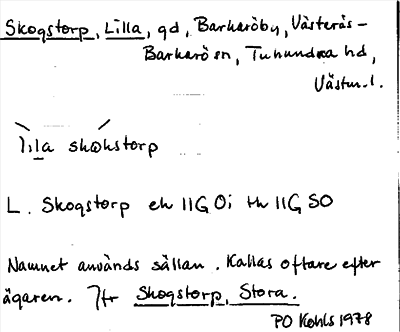 Skogstorp, Lilla, gd, Barkaröby, Västerås-
Barkarö sn, Tuhundra hd,
Västm.l.
lila skoksto̱rp
L. Skogstorp ek 11G 0i tk 11G SO
Namnet används sällan. Kallas oftare efter
ägaren. Jfr Skogstorp, Stora.
PO Kohls 1978